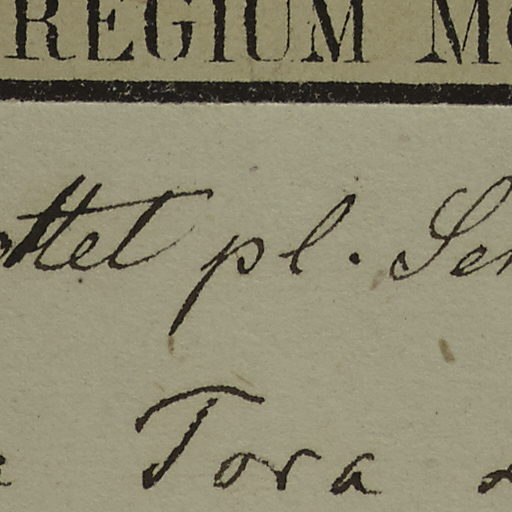 REGIUM MO
ottet pl. Sen
Tora